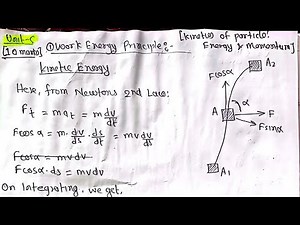 Unit-5
[10 marks]
① Work Energy Principle:-
[Kinetics of particle:
Energy & Momentum]
Kinetic Energy
Here, from Newtons 2nd Law:
Ft = mat = m dv/dt
Fcosα = m. dv/ds . ds/dt = mv dv/ds
Fcosα = mvdv
Fcosα.ds = mvdv
On Integrating, we get,
A2
Fcosα
α
A
F
Fsinα
A1